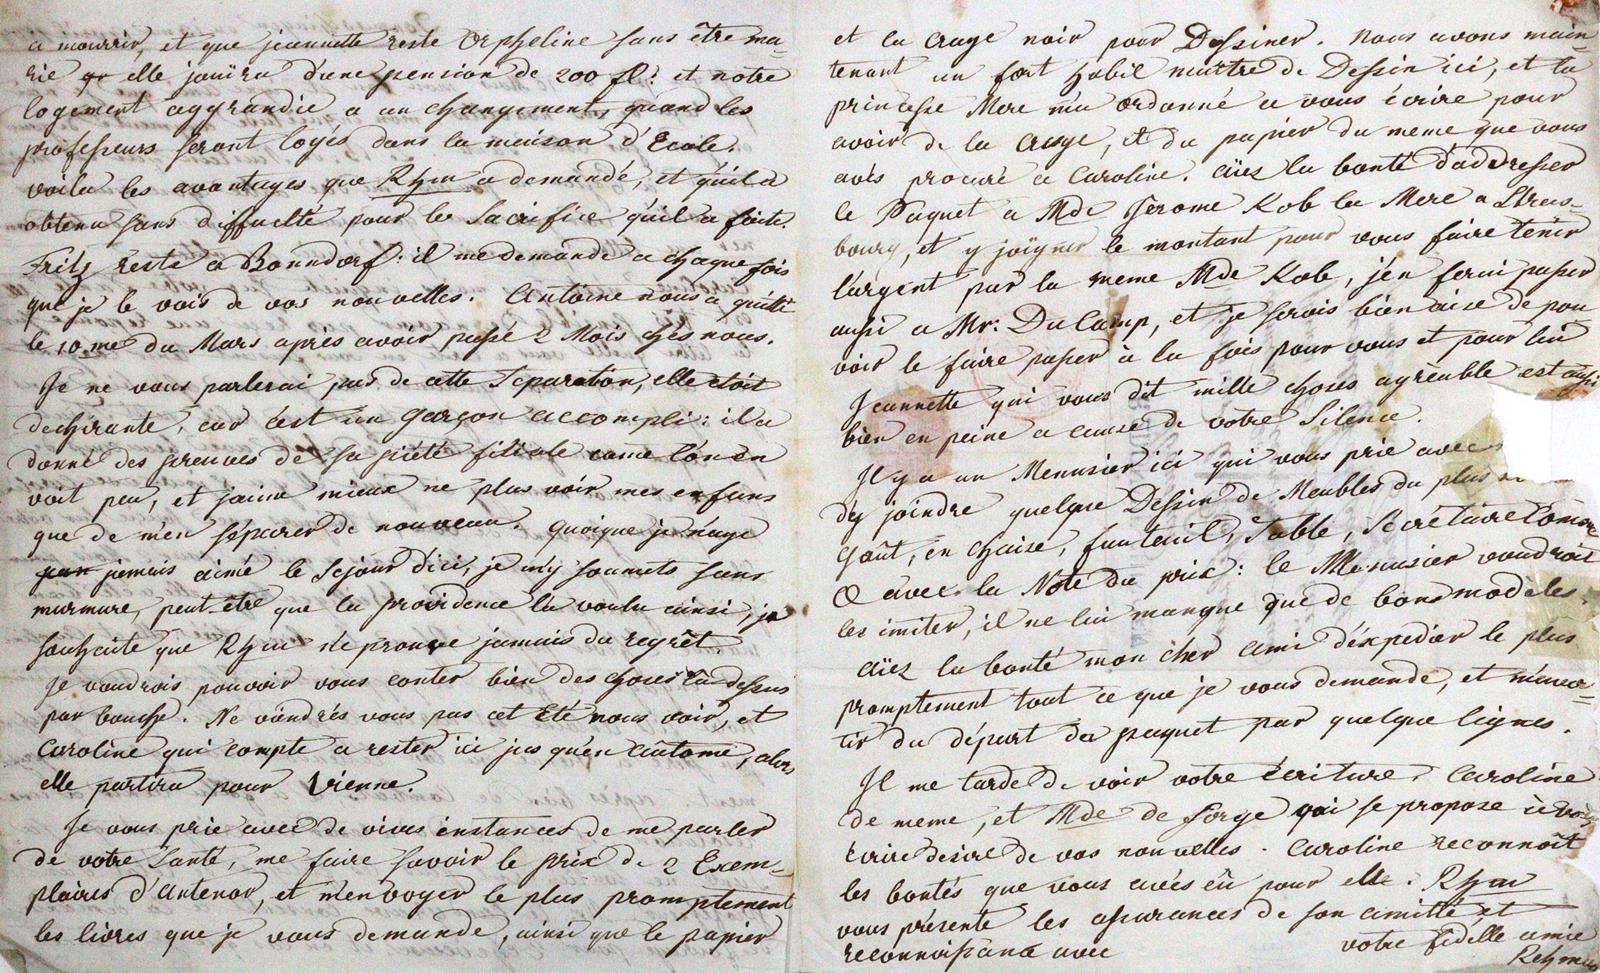 a mourrir, et que jeannette reste Orpheline sans être ma-
rie elle jouira d'une pension de 200 fl: et notre
logement aggrandie a un changement, quand les
professeurs seront logés dans la maison d'Ecole.
voila les avantages que Rhm a demandé, et qu'il a
obtenu sans diffuclté pour le Sacrifice qu'il a faite.
Fritz reste a Bonndorf: il me demande a chaque fois
que je le vois de vos nouvelles. Antoine nous a quitté
le 10.me du Mars après avoir passé 2 Mois chés nous.
Je ne vous parlerai pas de cette Separation, elle étoit
dechirante, car c'est un garçon accompli: il a
donné des preuves de sa piété filiale come l'on en
voit peu, et j'aime mieux ne plus voir mes enfans
que de m'en séparer de nouveau. quoique je n'aye
jamais aimé le Sejour d'ici, je m'y soumets sans
murmure, peut-etre que la providence l'a voulu ainsi, je
souhaite que Rhm n'eprouve jamais du regrêt.
Je voudrois pouvoir vous conter bien des choses là dessus
par bouche. Ne viendrés vous pas cet Eté nous voir, et
Caroline qui compte a rester ici jus qu'en Autome, alors
elle partira pour Vienne.
Je vous prie avec de vives instances de me parler
de votre Santé, me faire savoir le prix de 2 Exem-
plaires d'Antenor, et m'envoyer le plus promptement
les livres que je vous demande, ainsi que le papier
et la craye noir pour Dessiner. Nous avons main-
tenant un fort habil maitre de Dessin ici, et la
princesse Mere m'a ordonné a vous écrire pour
avoir de la craye, et du papier du meme que vous
avés procuré a Caroline. aïez la bonté d'addresser
le Paquet a Mde Jerome Kob la Mere a Stras-
bourg, et y joigner le montant pour vous faire tenir
l'argent par la meme Mde Kob, j'en ferai passer
aussi a Mr: Du Camp, et je serois bien aise de pou
voir le faire passer à la fois pour vous et pour lui
Jeannette qui vous dit mille choses agreable est aussi
bien en peine a cause de votre Silence.
Il y a un Menusier ici qui vous prie avec
d'ey joindre quelque Dessin de Meubles du plus
Goût, en chaise, fauteuil, Table, Secrétaire Comm
avec la Note du prix: le Menusier voudroit
les imiter, il ne lui manque que de bons modeles.
aïez la bonté mon cher ami d'éxpedier le plus
promptement tout ce que je vous demande, et m'aver-
tir du départ du paquet par quelque lignes.
Il me tarde de voir votre écriture, Caroline
de meme, et Mde de Forge qui se propose à vous
écrire desire de vos nouvelles. Caroline reconnoît
les bontés que vous avés eû pour elle. Rhm
vous présente les assurances de son amitié et
reconnoissance avec
votre fidelle amie
Rehman